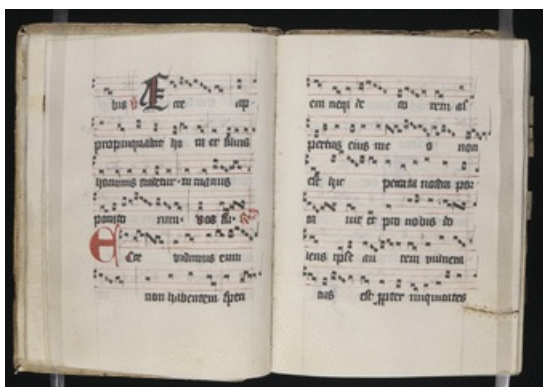 bis Ecce ap
propinquabit ho ra et filius
hominis tradetur in manus
pecca to rum. vos fu.
Ecce vidimus eum
non habentem speci
em neqȝ de co rem as
pectus eius in e o non
est hic peccata nostra por
ta uit et pro nobis do
lens ipse au tem vulnera
tus est propter iniquitates